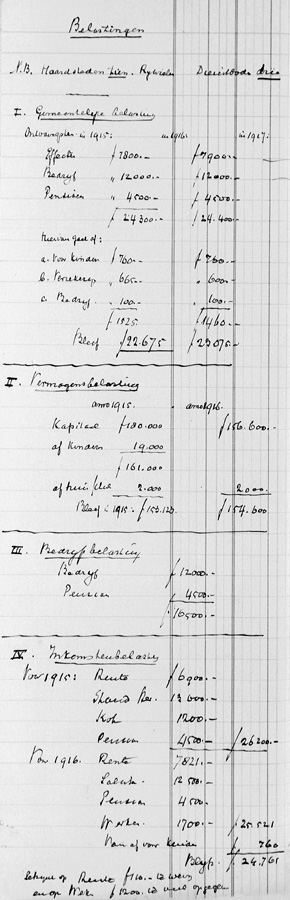 Belastingen
N.B. Haardsteden tien. Rywielen Dienstboden drie
I. Gemeentelyke belasting
Ontvangsten in 1915: in 1916: in 1917:
Effecten f 7800.- f 7900.-
Bedryf " 12000.- f 12000.-
Pensioen " 4500.- f 4500.-
f 24.300.- f 24.400.-
hiervan gaat af:
a. voor kinderen f 760.- f 760.-
b. 665.- " 600.-
c. Bedryf. " 100.- " 100.-
f 1525 f 1460.-
Blyft f 22.675 f 23075.-
II. Vermogensbelasting
anno 1915. anno 1916.
Kapitaal f 180.000 f 156.600.-
af kinderen 19.000
f 161.000
af huis 2.000 2000.-
Blyft in 1915: f 154.600
III. Bedryfbelasting
Bedryf f 12000.-
Pension f 4500.-
f 16500.-
IV. Inkomstenbelasting
Voor 1915: Rente f 6900.-
13000.-
1200.-
Pensioen 4500.- f 26200.-
Voor 1916. Rente 7821.-
12500.-
Pension 4500.-
Werken 1700.- f 25.521
af voor kinderen f 760
Blyft f 24.761
op Rente f 110.-
en op Werk f 1200. te veel opgegeven